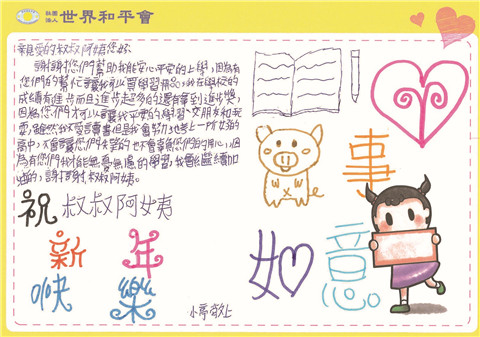 社團法人 世界和平會
親愛的叔叔阿姨您好:
謝謝您們幫助我能安心平安的上學,因為有
您們的幫忙讓我可以買學習用品,我在學校的
成績有進步而且進步起多的還有拿到進步獎,
因為您們才可以讓我平安的學習、交朋友和玩
耍,雖然我不愛讀書但是我會努力地考上一所好的
高中,不會讓您們失望的也不會辜負您們的用心,因
為有您們我才能無憂無慮的學習,我會繼續加
油的,謝謝叔叔阿姨。
祝 叔叔阿姨
新年
快樂
事
如意
敬上